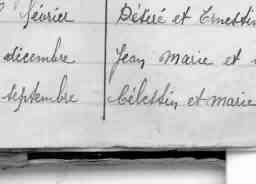 février Désiré et Ernestin
décembre Jean Marie et
septembre Célestin et marie